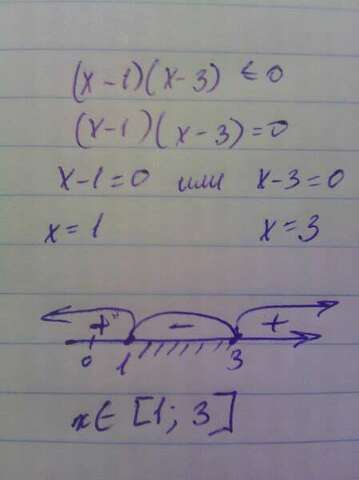 (x-1)(x-3) ≤ 0
(x-1)(x-3)=0
x-1=0 или x-3=0
x=1 x=3
+ - +
0 1 3
x∈ [1; 3]